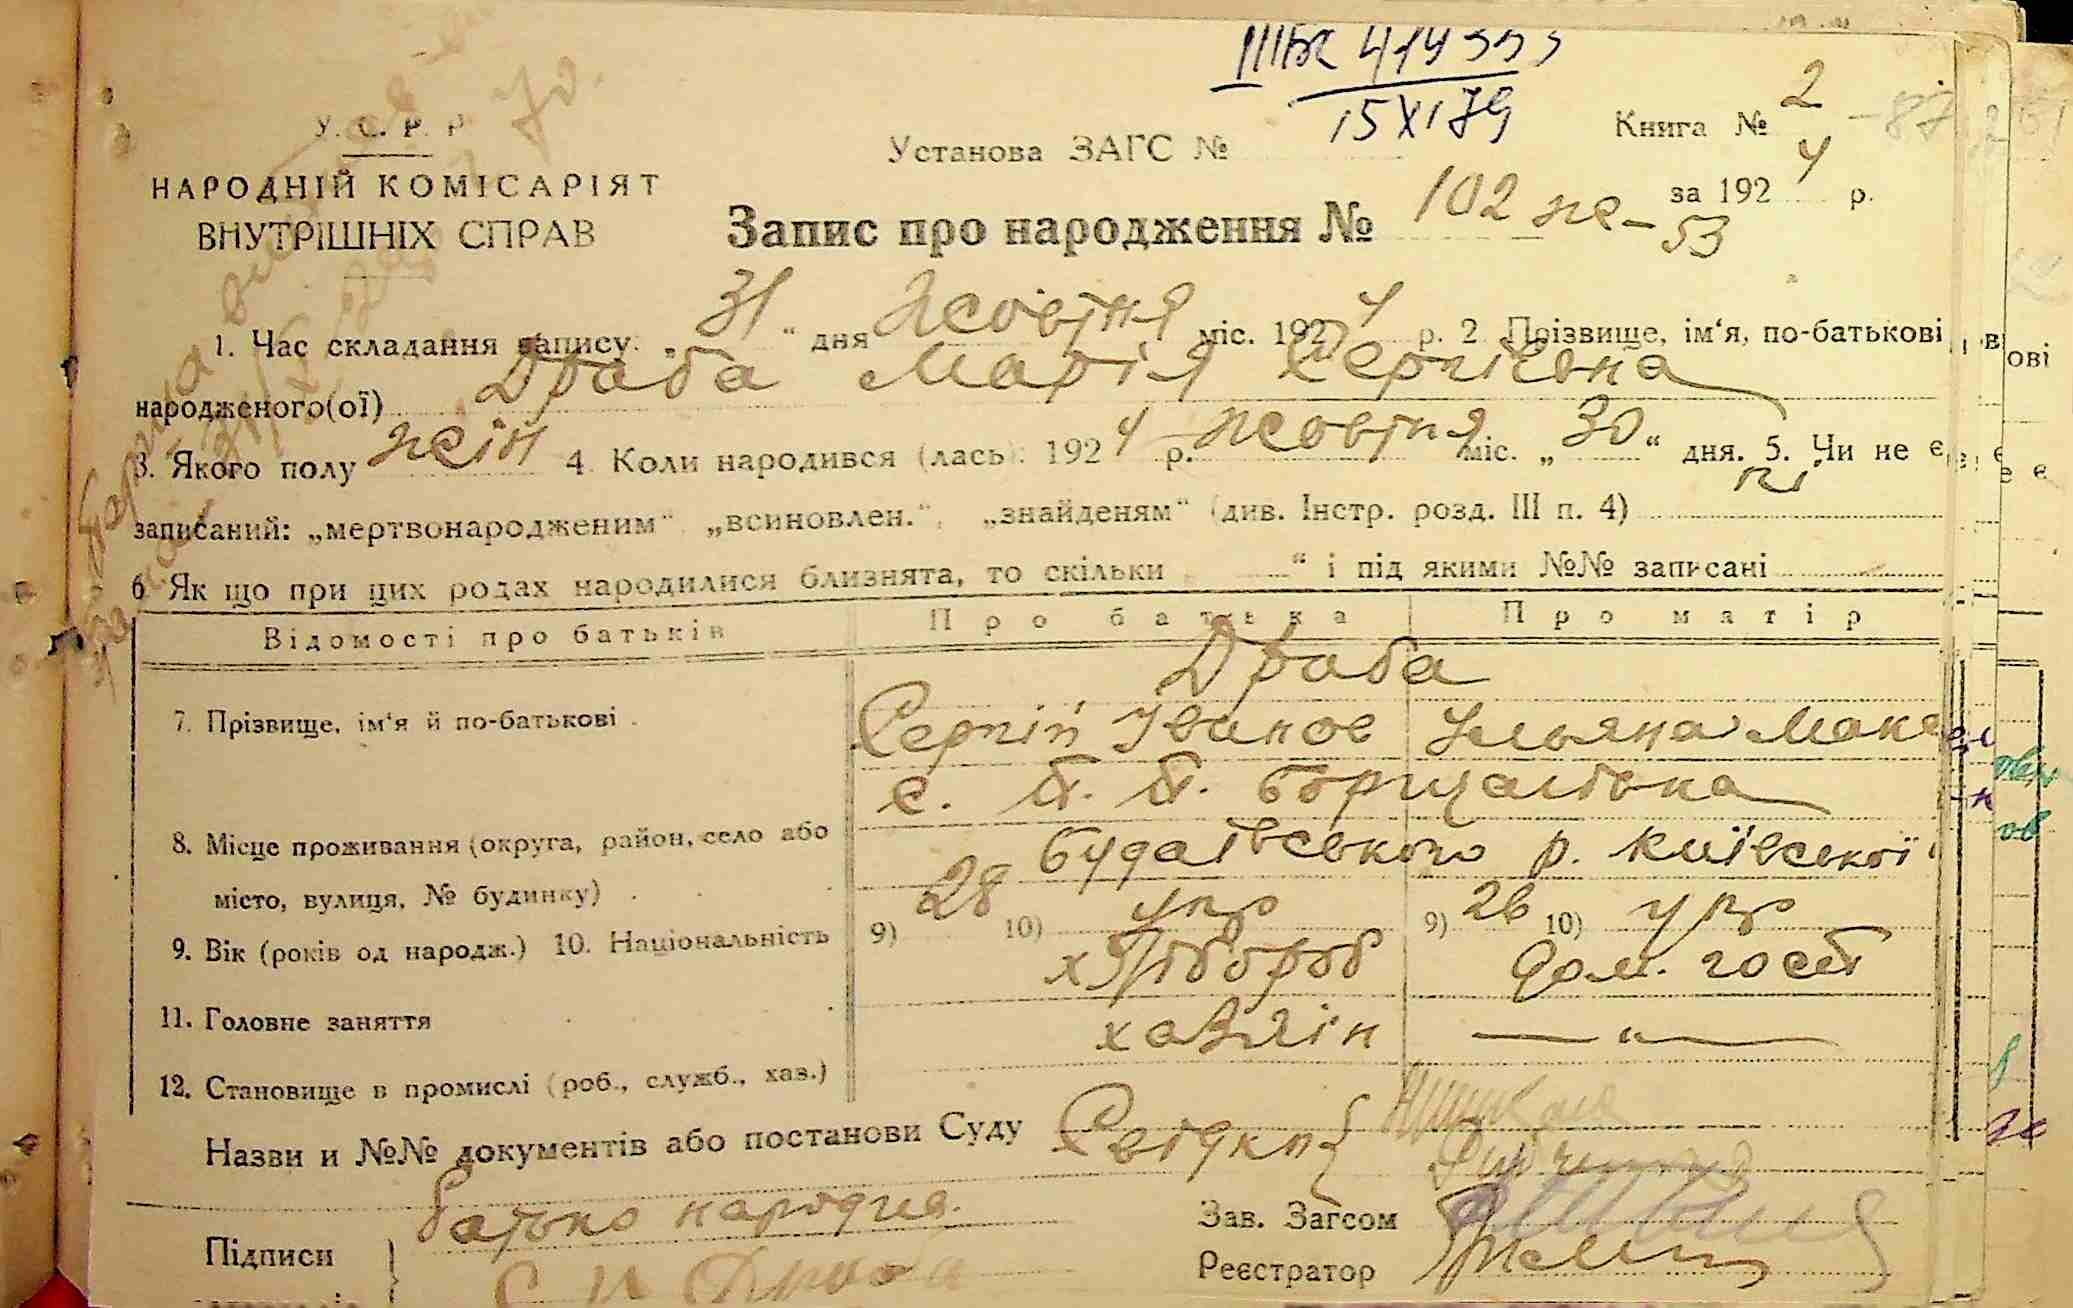 ІІІБК 419 555
15 XI 79
У. С. Р. Р
НАРОДНІЙ КОМІСАРІЯТ
ВНУТРІШНІХ СПРАВ
Установа ЗАГС №
Книга № 2
за 1924 р.
Запис про народження № 102 же-53
1. Час складання запису: „31“ дня жовтня міс. 1924 р. 2 Прізвище, ім‘я, по-батькові
народженого(ої) Драба Марія Сергіївна
3. Якого полу жін 4. Коли народився (лась): 1924 р. жовтня міс. „30“ дня. 5. Чи не є
записаний: „мертвонародженим“ „всиновлен.“, „знайденям“ (див. Інстр. розд. III п. 4) ні
6 Як що при цих родах народилися близнята, то скільки “ і під якими №№ записані
Відомості про батьків Про батька Про матір
Драба
7. Прізвище, ім‘я й по-батькові . Сергій Іванов Ульяна Мак
с. П. П. Борщагівка
8. Місце проживання (округа, район, село або
місто, вулиця, № будинку) . Будаївського р. Київської
9. Вік (років од народж.) 10. Національність 9) 28 10) укр 9) 26 10) укр
11. Головне заняття хлібороб дом. госп
12. Становище в промислі (роб., служб., хаз.) хазяїн — „ —
Назви и №№ документів або постанови Суду Свідки {
Підписи } батько народже.
С И Драба
Зав. Загсом
Реєстратор